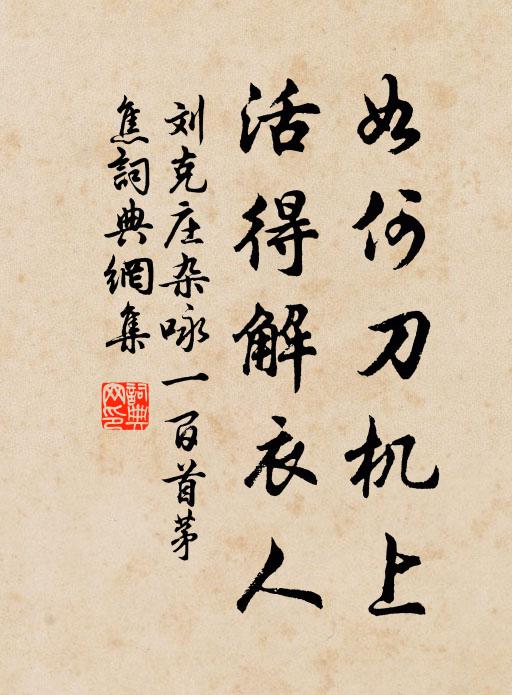 如何刀机上
活得解衣人
刘克庄杂咏一百首茅
焦詞典網集
詞典網印